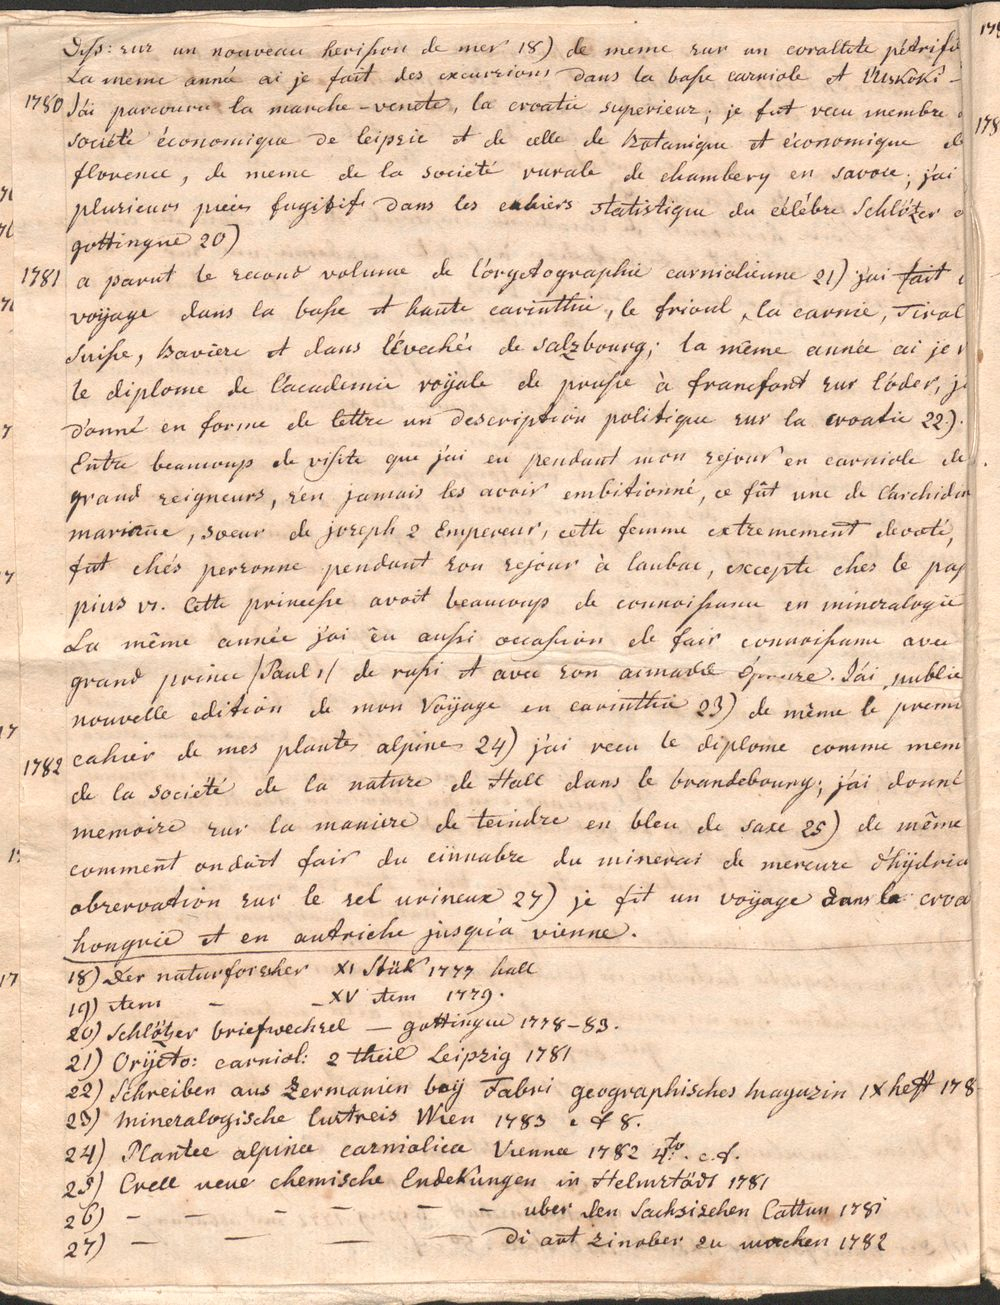 Diss: sur un nouveau herisson de mer 18) de meme sur un corallete pétrifié
La meme année ai je fait des excursions dans la basse carniole et l'uskoki -
1780 J'ai parcouru la marche-venete, la croatie superieur; je fut recu membre
société économique de leipzic et de celle de Botanique et économique de
florence, de meme de la société rurale de chambery en savoie; j'ai
plusieurs pieces fugitifs dans les cahiers statistique du célébre Schlötzer
gottingue 20)
1781 a parut le second volume de l'orÿctographie carniolienne 21) j'ai fait
voÿage dans la basse et haute carinthie, le frioul, la carnie, Tirol
Suisse, Bavière et dans l'évechée de Salzbourg; la même année ai je r
le diplome de l'academie roÿale de prusse à francfort sur l'oder, j
donné en forme de lettre un description politique sur la croatie 22).
Entre beaucoup de visite que j'ai eu pendant mon sejour en carniole de
grand seigneurs, s'en jamais les avoir embitionné, ce fût une de l'archidu
marianne, sœur de joseph 2 Empereur, cette femme extremement devoté,
fut chés personne pendant son sejour à laubac, excepte ches le pap
pius VI. Cette princesse avoit beaucoup de connoissance en mineralogie
La même année j'ai êu aussi occassion de fair connoissance avec
grand prince /Paul 1/ de russi et avec son aimable épouse. J'ai publié
nouvelle edition de mon Voÿage en carinthie 23) de même le premi
cahier de mes plantes alpines 24) j'ai recu le diplome comme mem
1782 de la société de la nature de Hall dans le brandebourg; j'ai donné
memoire sur la maniere de teindre en bleu de saxe 25) de même
comment on doit fair du cinnabre du minerai de mercure d'hÿdria
observation sur le sel urineux 27) je fit un voÿage dans la croa
hongrie et en autriche jusqu'a vienne.
18) Der naturforscher XI Stük 1777 hall
19) item - - XV item 1779.
20) Schlötzer briefwechsel — gottingue 1778-83.
21) Orÿcto: carniol: 2 theil Leipzig 1781
22) Schreiben aus Germanien beÿ Fabri geographisches magazin IX heft 178
23) mineralogische lustreis Wien 1783 c f 8.
24) Plantae alpinae carniolica Viennae 1782 4to. c. f.
25) Crell neue chemische Endekungen in Helmstädt 1781
26) — — — — — — uber den Sachsischen Cattun 1781
27) — — — — di art zinober zu machen 1782